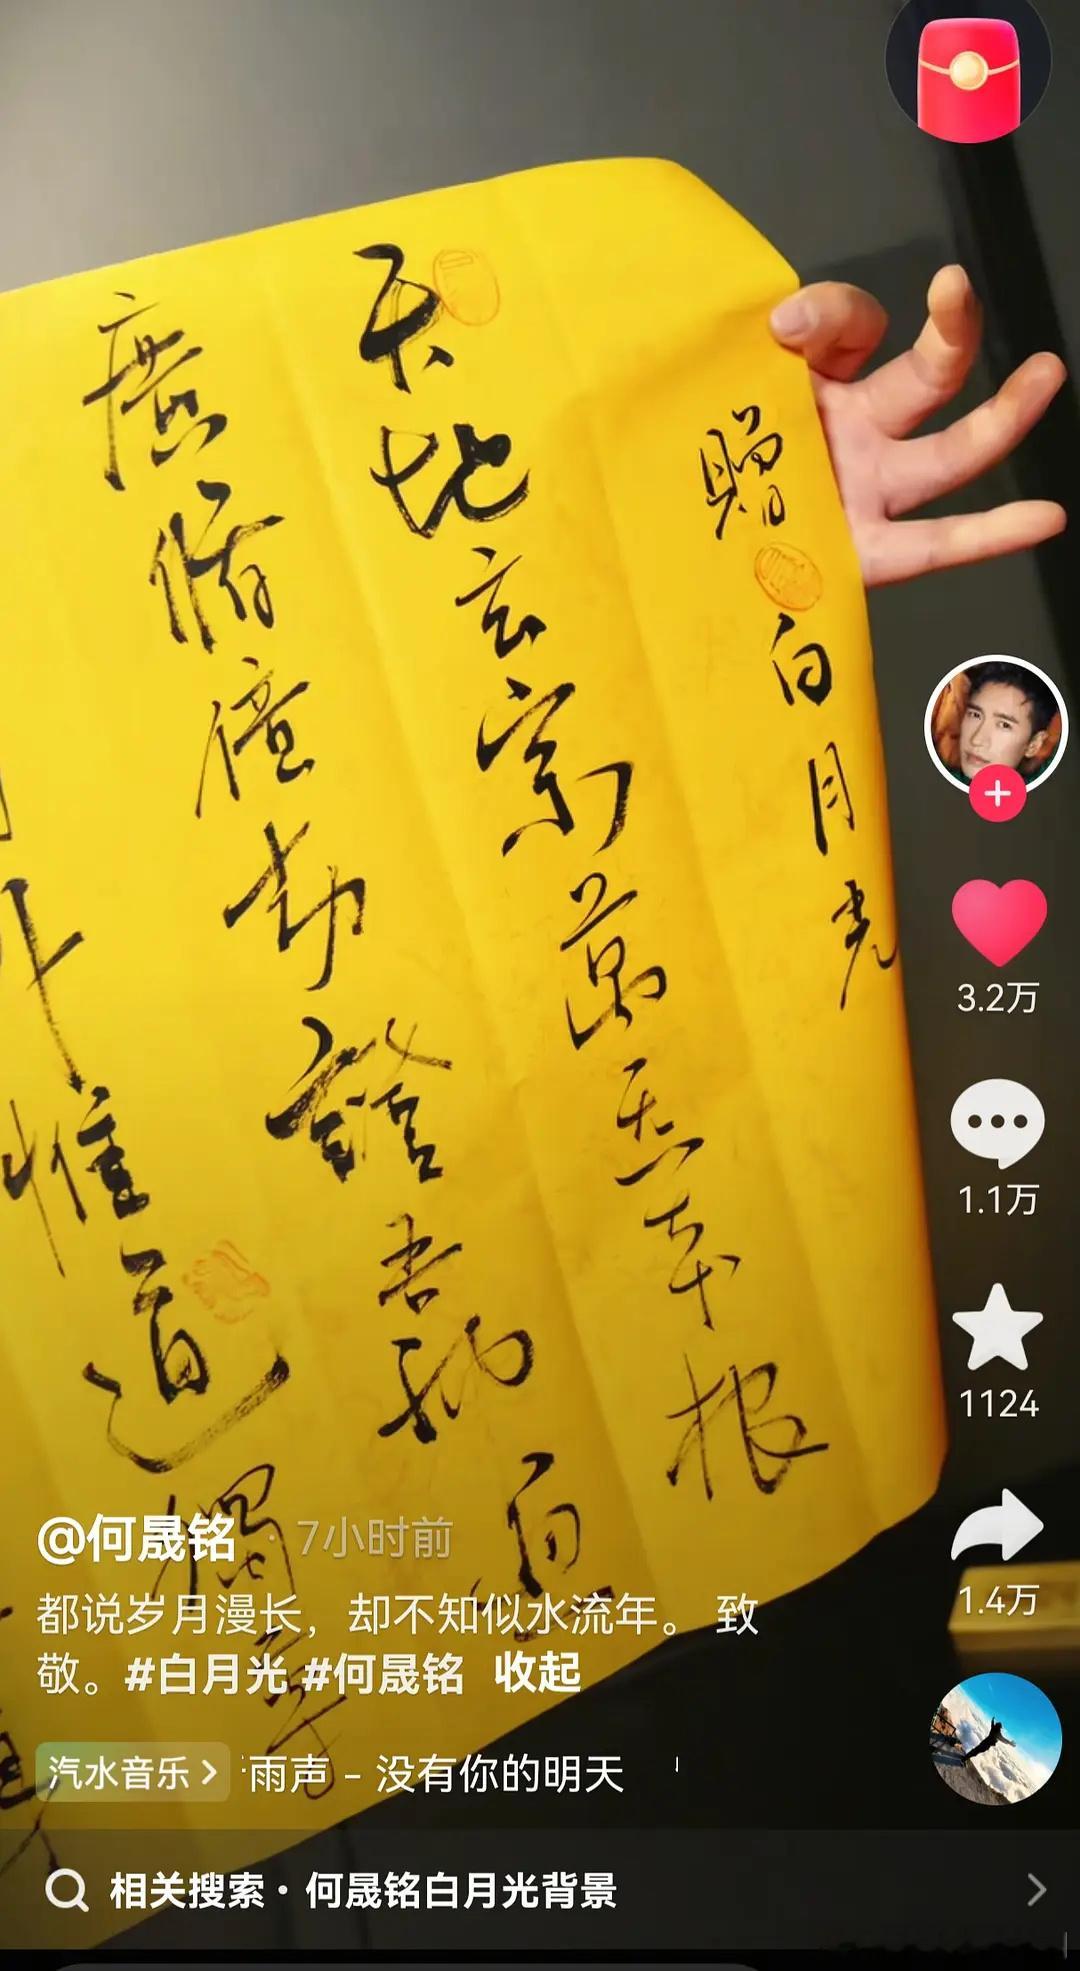 贈白月光
天地玄宗萬炁本根
廣脩億劫證吾神通
惟道獨
@何晟铭 · 7小时前
都说岁月漫长，却不知似水流年。 致
敬。#白月光 #何晟铭 收起
汽水音乐 雨声 - 没有你的明天
相关搜索 · 何晟铭白月光背景
3.2万
1.1万
1124
1.4万